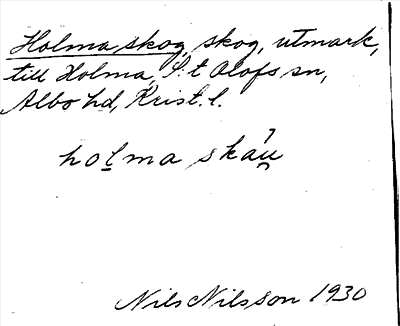 Holma skog, skog, utmark,
till Holma, S:t Olofs sn,
Albo hd, Krist. l.
holma skau
Nils Nilsson 1930